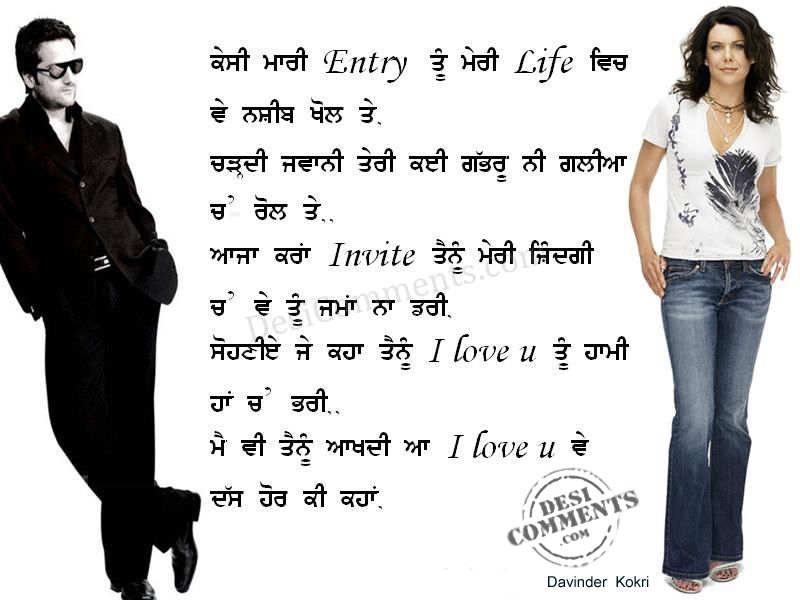 ਕੇਸੀ ਮਾਰੀ Entry ਤੂੰ ਮੇਰੀ Life ਵਿਚ
ਵੇ ਨਸ਼ੀਬ ਖੋਲ ਤੇ.
ਚੜ੍ਹਦੀ ਜਵਾਨੀ ਤੇਰੀ ਕਈ ਗੱਭਰੂ ਨੀ ਗਲੀਆ
ਚ' ਰੋਲ ਤੇ..
ਆਜਾ ਕਰਾਂ Invite ਤੈਨੂੰ ਮੇਰੀ ਜ਼ਿੰਦਗੀ
ਚ' ਵੇ ਤੂੰ ਜਮਾਂ ਨਾ ਡਰੀ.
ਸੋਹਣੀਏ ਜੇ ਕਹਾ ਤੈਨੂੰ I love u ਤੂੰ ਹਾਮੀ
ਹਾਂ ਚ' ਭਰੀ..
ਮੈ ਵੀ ਤੈਨੂੰ ਆਖਦੀ ਆ I love u ਵੇ
ਦੱਸ ਹੋਰ ਕੀ ਕਹਾਂ.
DesiComments.com
DESI
COMMENTS
.COM
Davinder Kokri